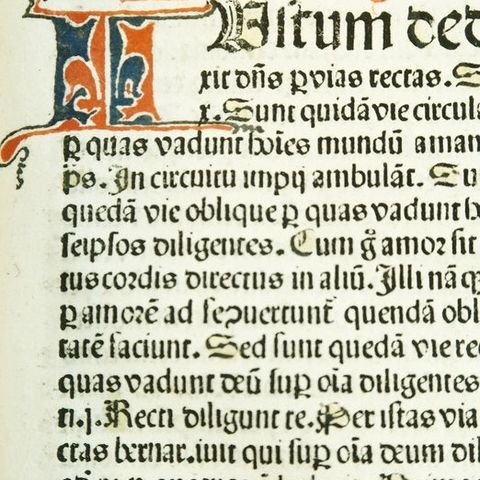 Iustum ded
xit dn̄s ꝑ vias rectas. S
x. Sunt quidā vie circul
ꝑ quas vadunt hoīes mundū aman
ps. In circuitu impij ambulāt. Su
quedā vie oblique ꝑ quas vadunt
seipsos diligentes. Cum g̊ amor sit
tus cordis directus in aliū. Illi nā
ꝑ amorē ad se ↄuertunt quendā obl
tatē faciunt. Sed sunt quedā vie rec
quas vadunt deū sup oīa diligentes
ti. j. Recti diligunt te. Per istas via
ctas bernar. iuit qui sup oīa deum dil